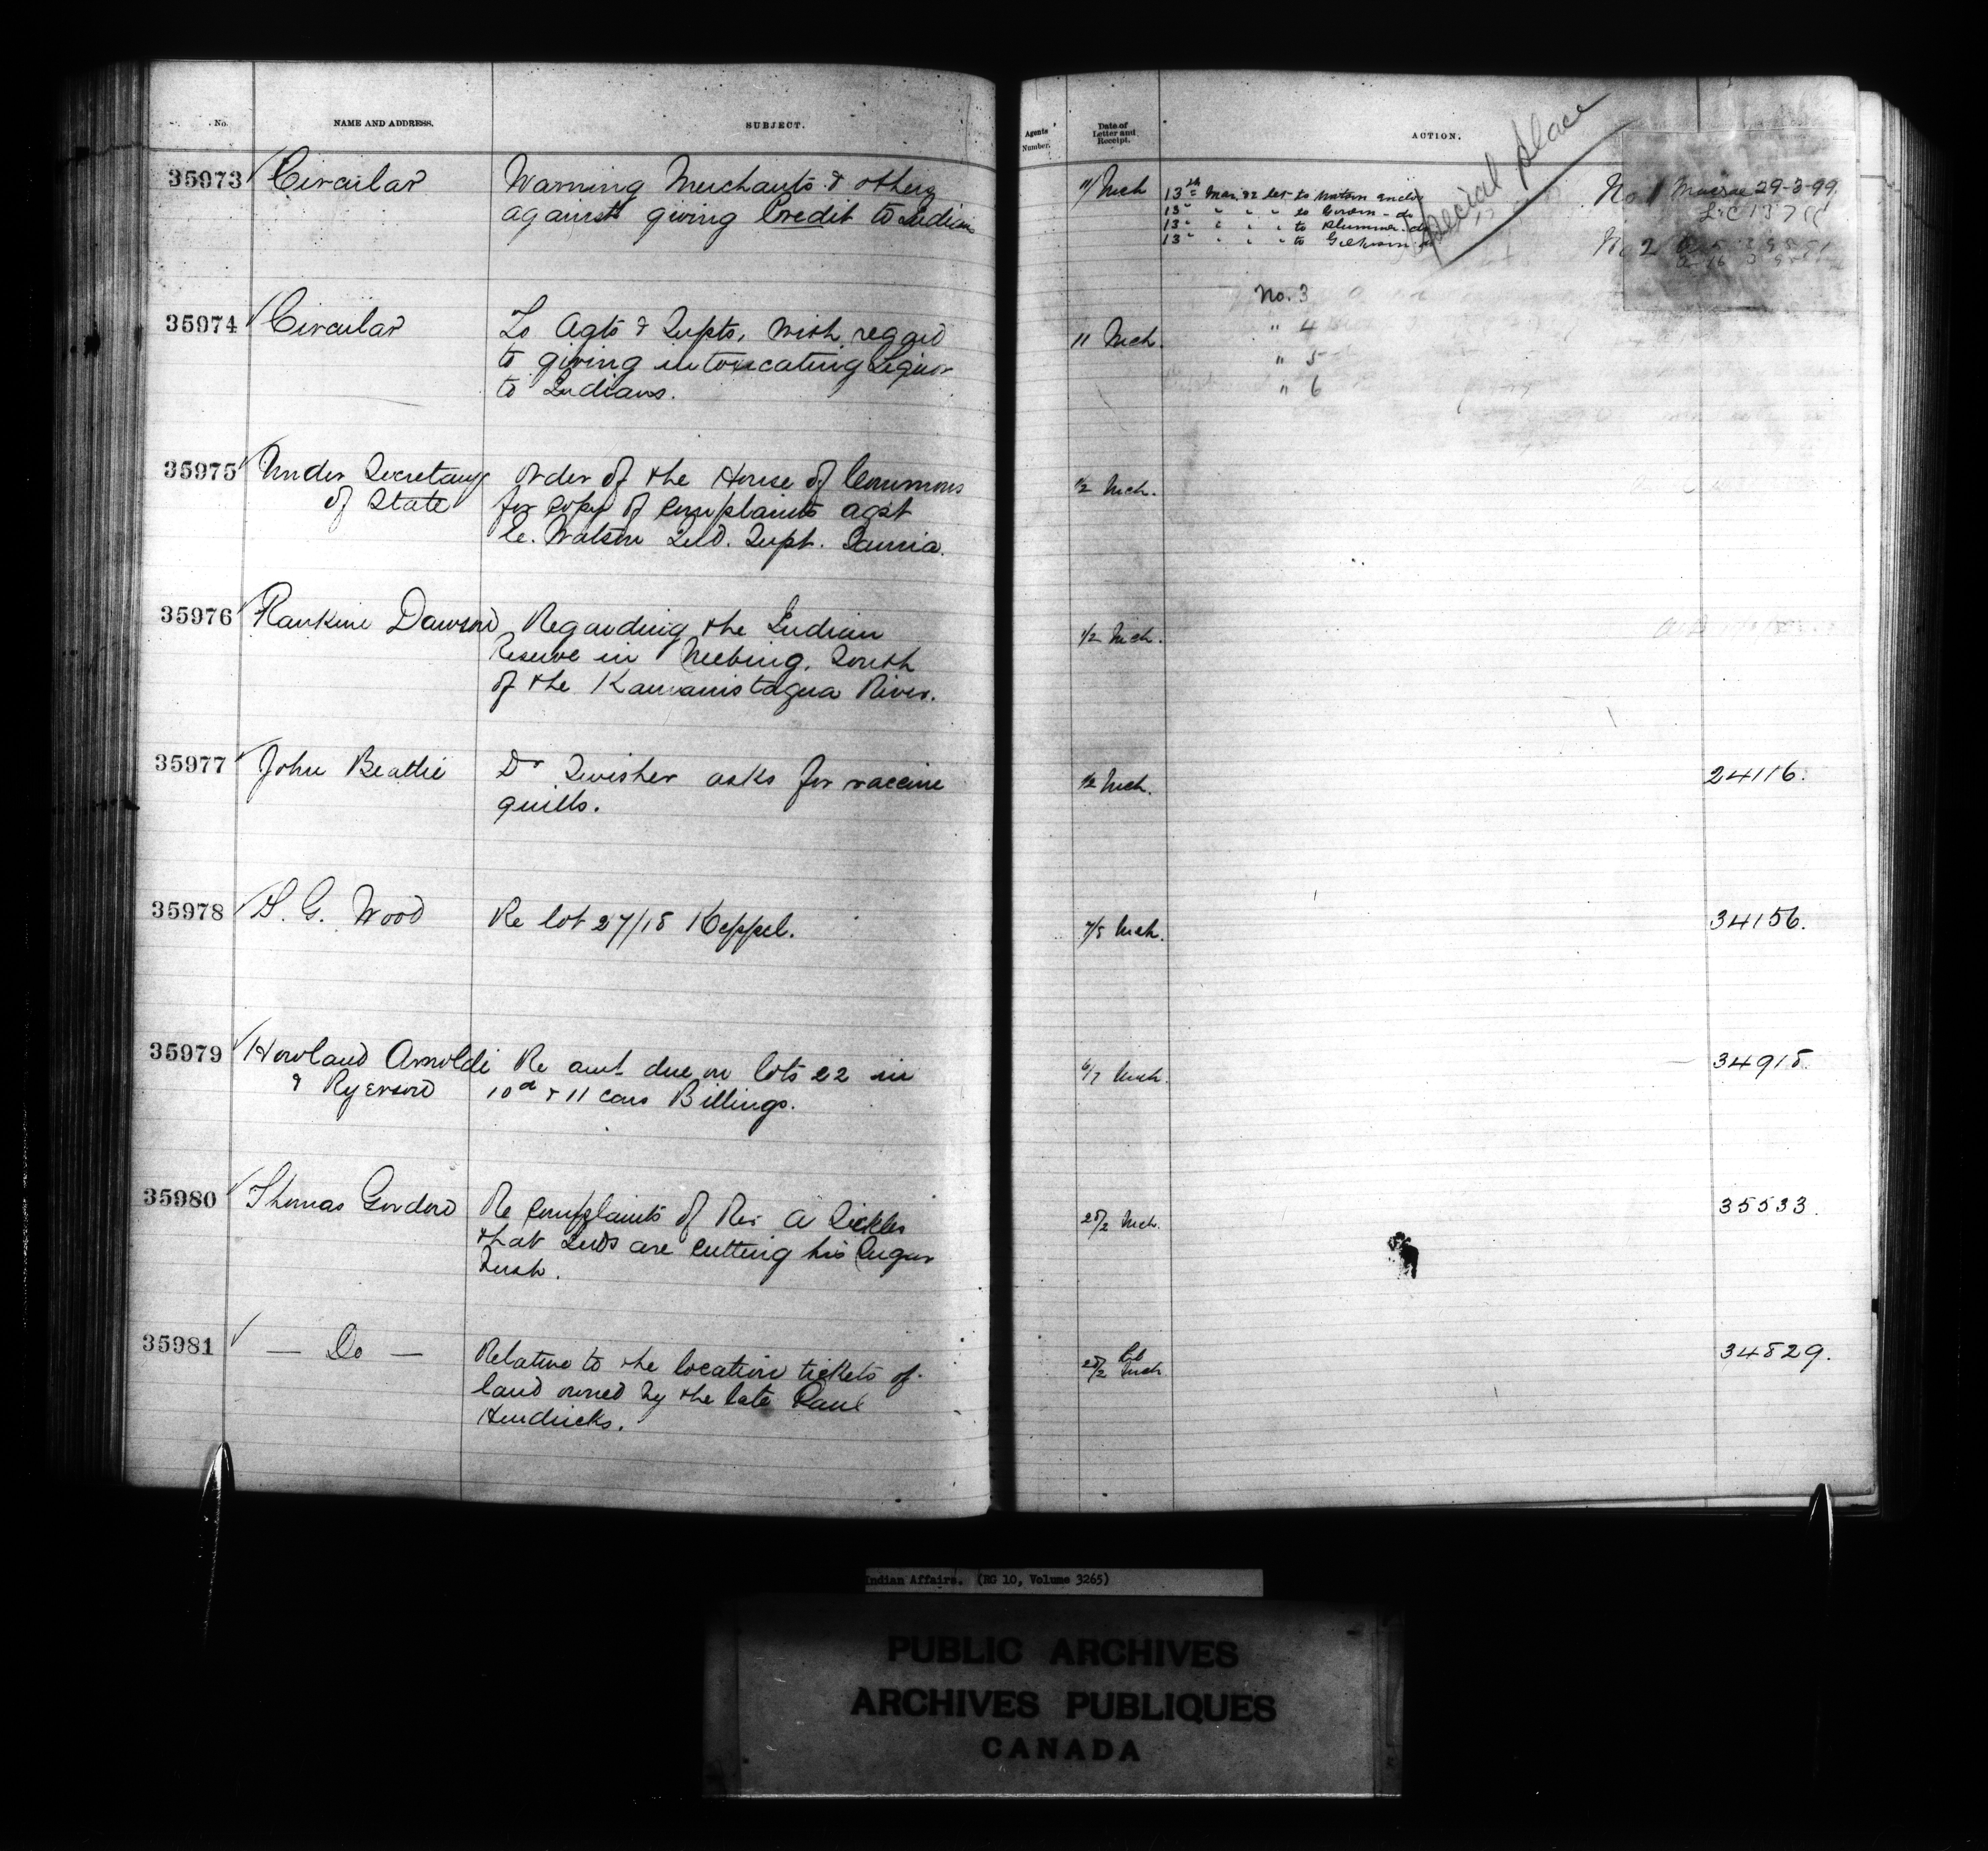 No.
NAME AND ADDRESS.
SUBJECT.
35973 Circular
Warning Merchants & others
against giving Credit to Indians
35974 Circular
To Agts & Supts, with regard
to giving intoxicating Liquor
to Indians.
35975 Under Secretary
of State
Order of the House of Commons
for copy of complaints agst
E. Watson Ind. Supt. Sarnia.
35976 Rankine Dawson
Regarding the Indian
Reserve in Neebing, South
of the Kamanistaqua River.
35977 John Beattie
Dr Swisher asks for vaccine
quills.
35978 S. G. Wood
Re lot 27/18 Keppel.
35979 Howland Arnoldi
& Ryerson
Re amt due on lots 22 in
10 & 11 cons Billings.
35980 Thomas Gordon
Re complaints of Rev A Sickles
that Inds are cutting his Sugar
Bush.
35981 — Do —
Relative to the location tickets of
land owned by the late Paul
Hendricks.
Agents Number.
Date of Letter and Receipt.
ACTION.
Special place
11/ Mch
13th Mar 82 let to Watson Enclo
13" " " " to - do
13" " " " to Plummer - do
13" " " " to Gilkison
No 1 Macrae 29-3-99.
No 2
No. 3
" 4
" 5
" 6
11 Mch.
1/2 Mch.
1/2 Mch.
1/2 Mch.
24116.
7/8 Mch.
34156.
6/7 Mch.
34918.
28/2 Mch.
35533.
28/2 Feb
Mch
34829.
Indian Affairs. (RG 10, Volume 3265)
PUBLIC ARCHIVES
ARCHIVES PUBLIQUES
CANADA